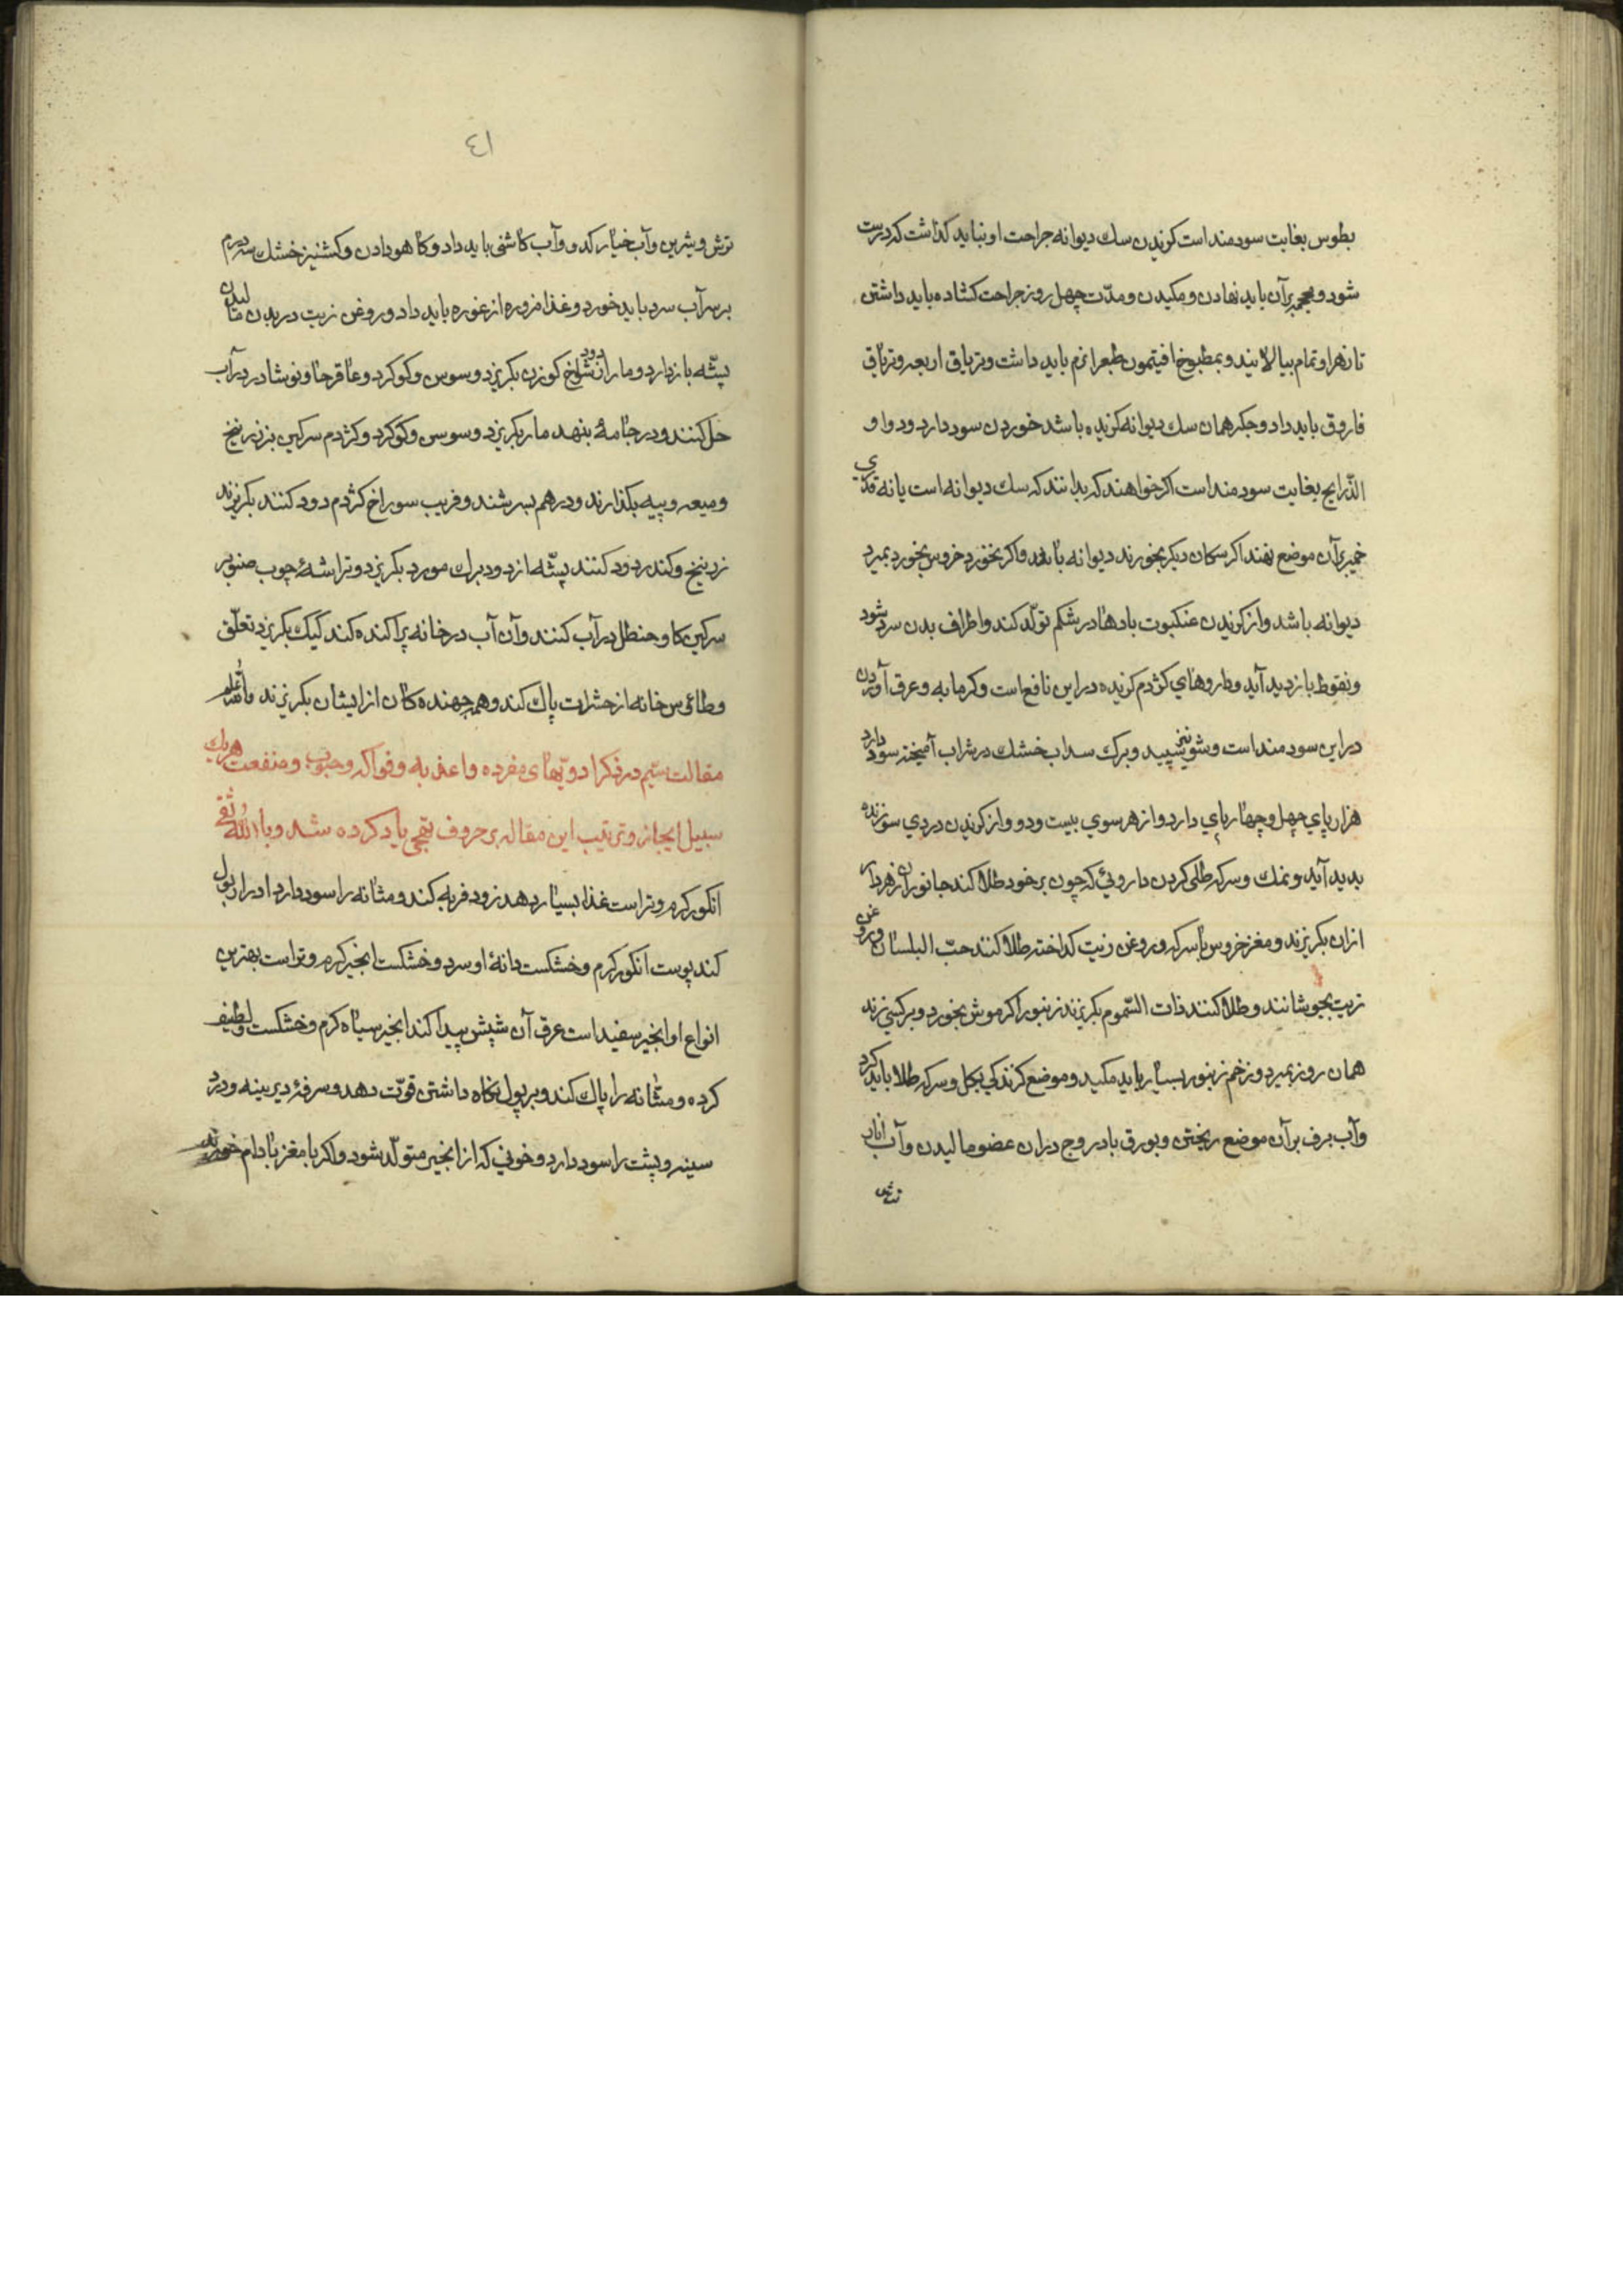 بطوس بغایت سودمند است کزیدن سك دیوانه جراحت او نباید کذاشت که درست
شود و محجمه بر آن باید نهادن و مکیدن و مدّت چهل روز جراحت کشاده باید داشتن
تا زهر او تمام بپالایند و بمطبوخ افیتمون طبع را نرم باید داشت و تریاق اربعه و تریاق
فاروق باید داد و جکر همان سك دیوانه که کزیده باشد خوردن سود دارد و دواو
الذرایح بغایت سودمند است اکر خواهند که بدانند که سك دیوانه است یا نه قدری
خمیر بر آن موضع نهند اکر سکان دیکر بخورند دیوانه نباشد و اکر نخورد خروس بخورد بمیرد
دیوانه باشد و از کزیدن عنکبوت بادها در شکم تولّد کند و اطراف بدن سرد شود
و نقوظ بازدید آید و داروهای کژدم کزیده در این نافع است و کرمابه و عرق آوردن
در این سودمند است و شونیز سپید و برك سداب خشك در شراب آمیخته سود دارد
هزار پای چهل و چهار پای دارد و از هر سوی بیست و دو و از کزیدن دردی سوزنده
بدید آید و نمك و سرکه طلی کردن داروئی که چون بر خود طلا کند جانوران زهردار
ازان بکریزند و مغز خروس با سرکه و روغن زیت کداخته طلا کنند حبّ البلسان و روغن
زیت بجوشانند و طلا کنند ذات السّموم بکریزند زنبور اکر موش بخورد و بر کسی زند
همان روز بمیرد و زخم زنبور بسیار باید مکید و موضع کزندکی بکل و سرکه طلا باید کرد
و آب برف بر آن موضع ریختن و بورق بادروج در ان عضو مالیدن و آب انار
ترش
٤١
ترش و شیرین و آب خیار و کدو و آب کاشنی باید داد و کاهو دادن و کشنیز خشك سه درم
بر سر آب سرد باید خورد و غذا مزوره از غوره باید داد و روغن زیت در بدن مالیدن
پشّه باز دارد و مار از دود شاخ کوزن بکریزد و سوس و کوکرد و عاقرحا و نوشادر در آب
حل کنند و در جامهٔ بنهد مار بکریزد و سوس و کوکرد و کژدم سرکین بز زرنیخ
و میعه و پیه بکدازند و درهم بسرشند و قریب سوراخ کژدم دود کنند بکریزند
زرنیخ و کندر دود کنند پشّه از دود برك مورد بکریزد و تراشهٔ چوب صنوبر
سرکین کاو و حنظل در آب کنند و آن آب در خانه پراکنده کند کیك بکریزد تعلّق
و طاؤس خانه از حشرات پاك کند و هم جهنده کان از ایشان بکریزند والله اعلم
مقالت سیّم در ذکر ادویهای مفرده و اغذیه و فواکه و حبوب و منفعت هریك
سبیل ایجاز و ترتیب این مقاله بر حروف تهجّی یاد کرده شد و بالله ثقتی
انکور کرم و تر است غذا بسیار دهد زود فربه کند و مثانه را سود دارد ادرار بول
کند پوست انکور کرم و خشکست دانهٔ او سرد و خشکست انجیر کرم و تر است بهترین
انواع او انجیر سفید است عرق آن شپش پیدا کند انجیر سیاه کرم و خشکست و لطیف
کرده و مثانه را پاك کند و بر بول نکاه داشتن قوّت دهد و سرفهٔ دیرینه و درد
سینه و پشت را سود دارد و خونی که از انجیر متولّد شود و اکر با مغز بادام خورند